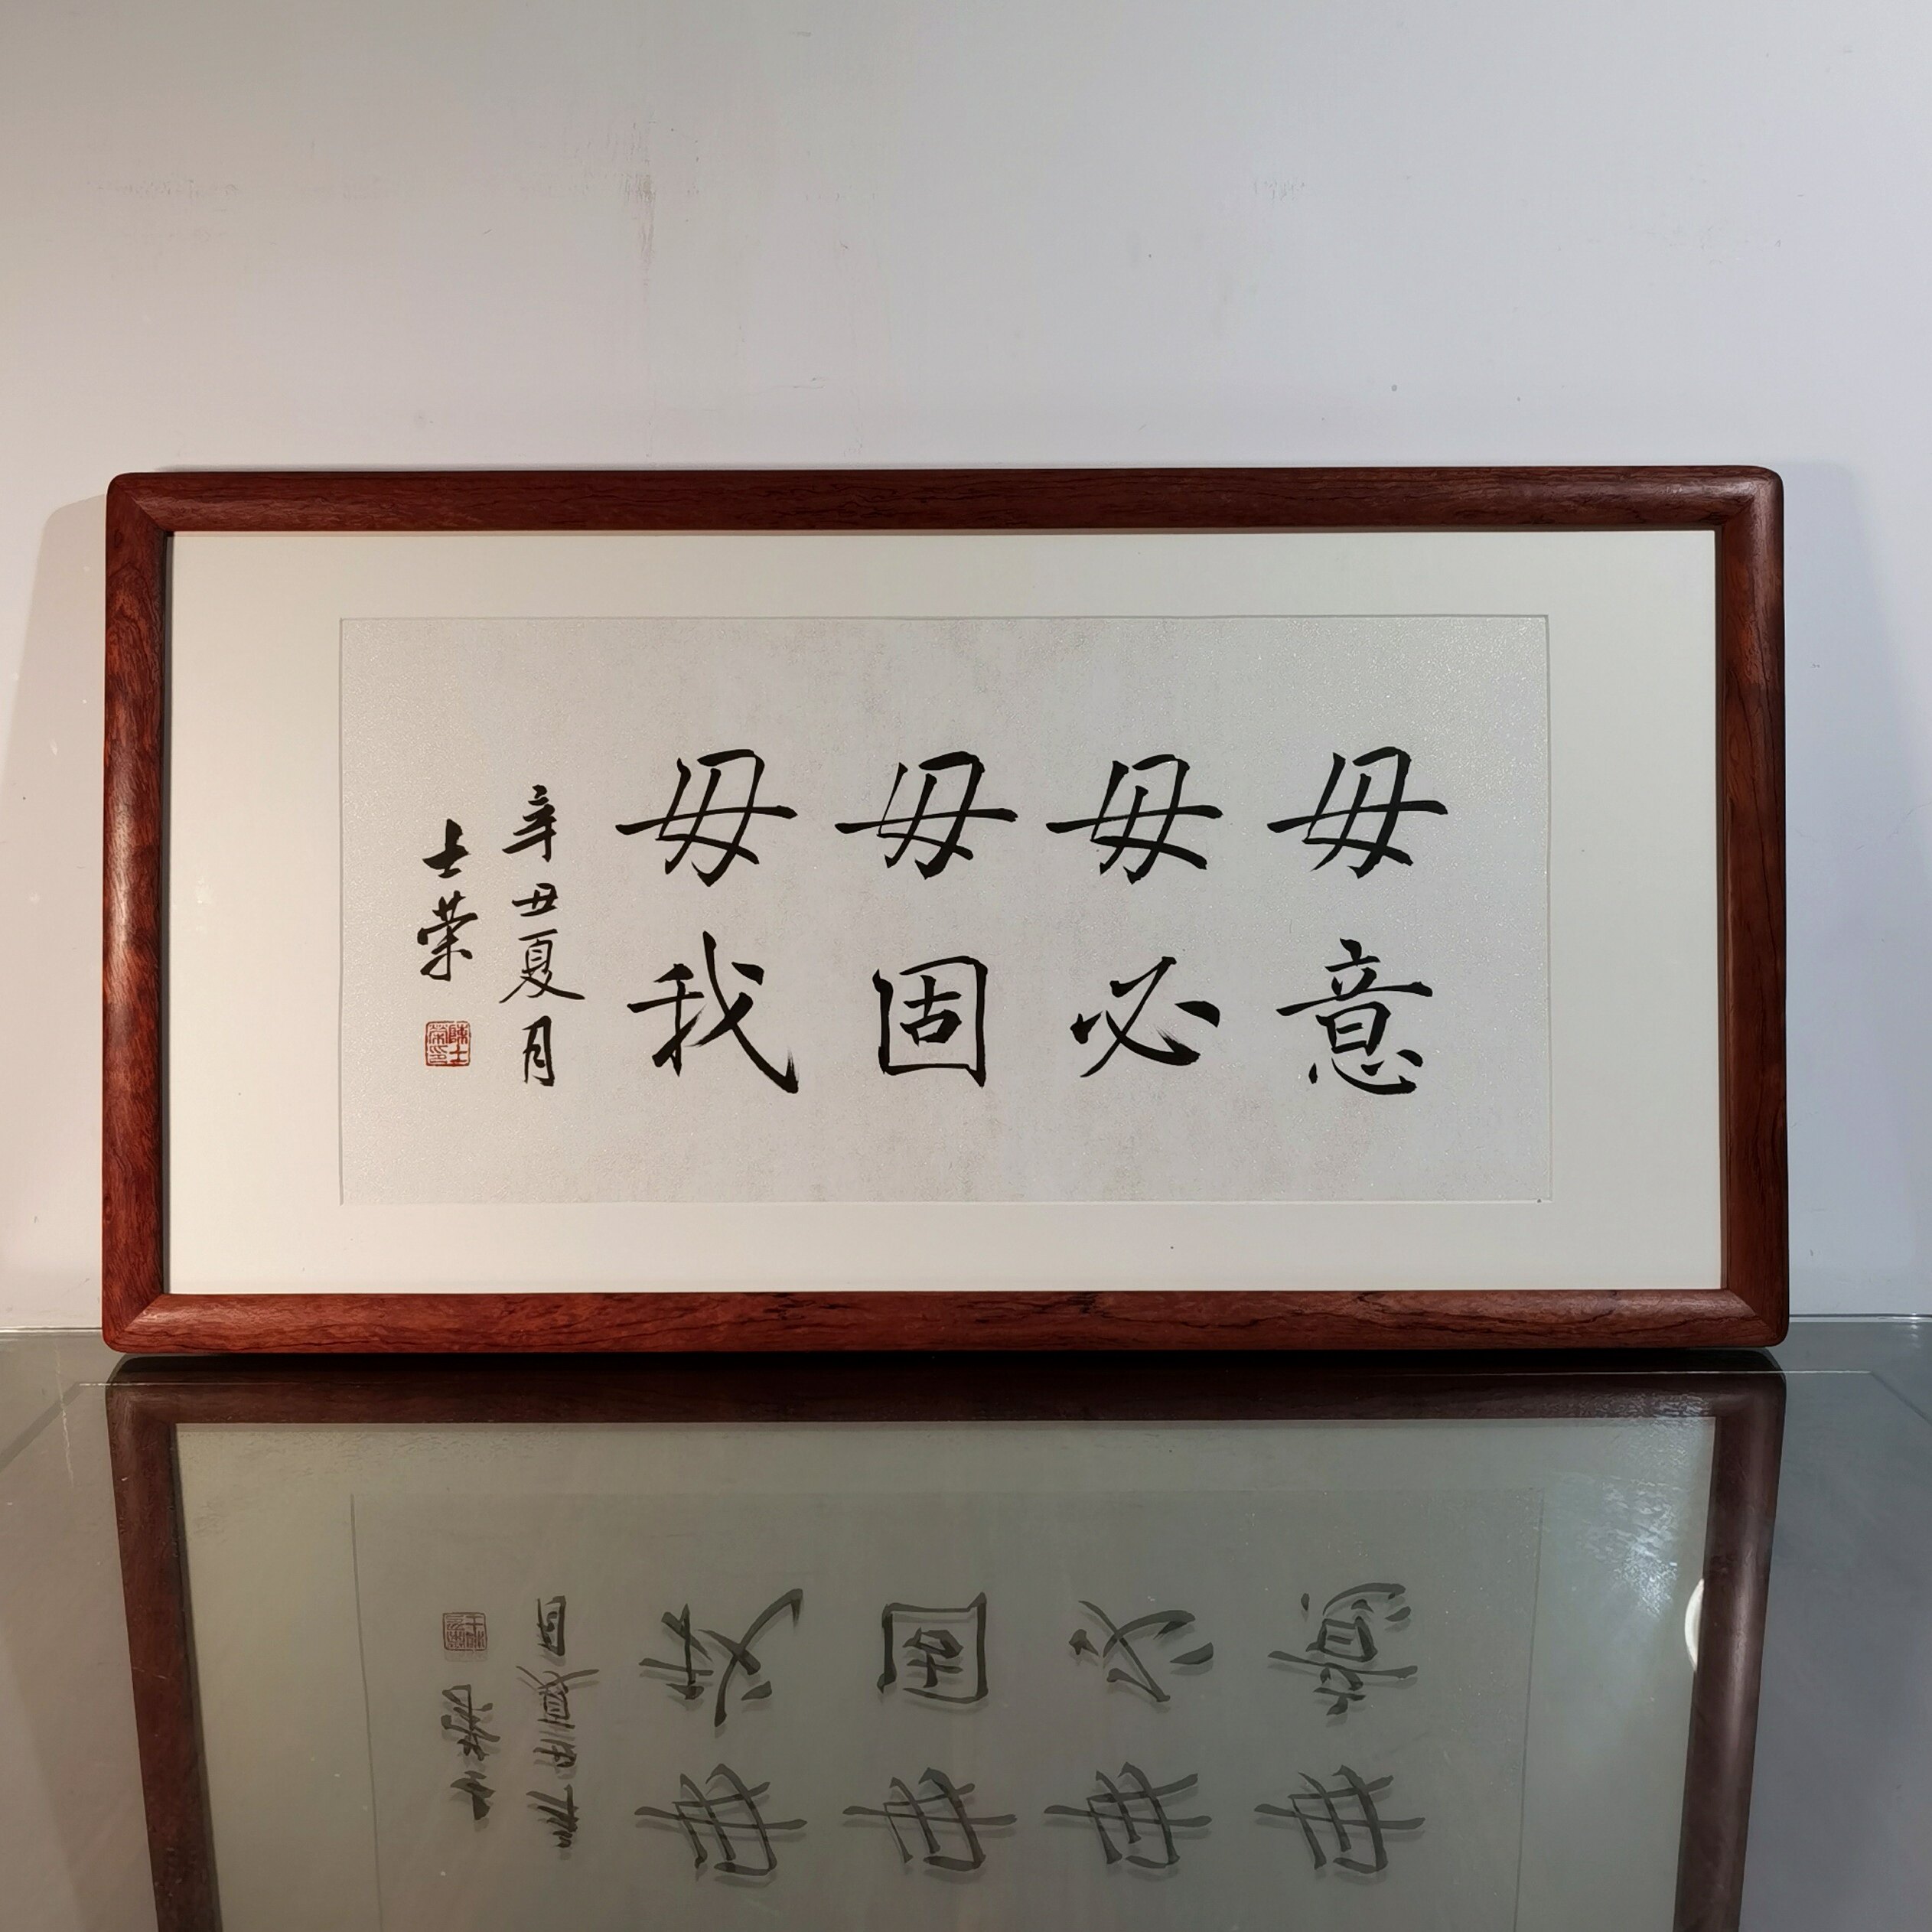 毋意
毋必
毋固
毋我
辛丑夏月
士荣
陳士荣印